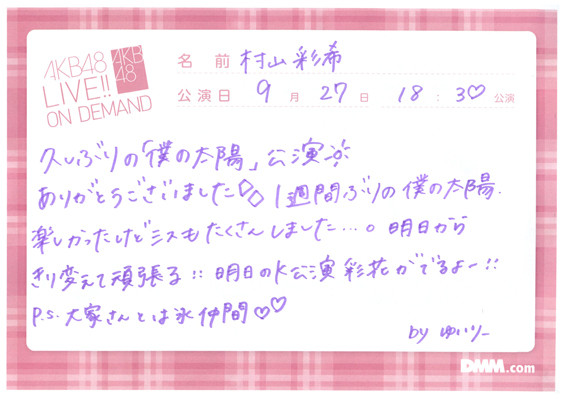 AKB48
LIVE!!
ON DEMAND
AKB
48
名前 村山彩希
公演日 9月27日 18:30公演
久しぶりの「僕の太陽」公演
ありがとうございました◇◇ 1週間ぶりの僕の太陽.
楽しかったけどミスもたくさんしました…。明日から
きり変えて頑張る!! 明日のK公演 彩花がでるよー!!
P.S. 大家さんとは氷仲間♡♡
by ゆいりー
DMM.com